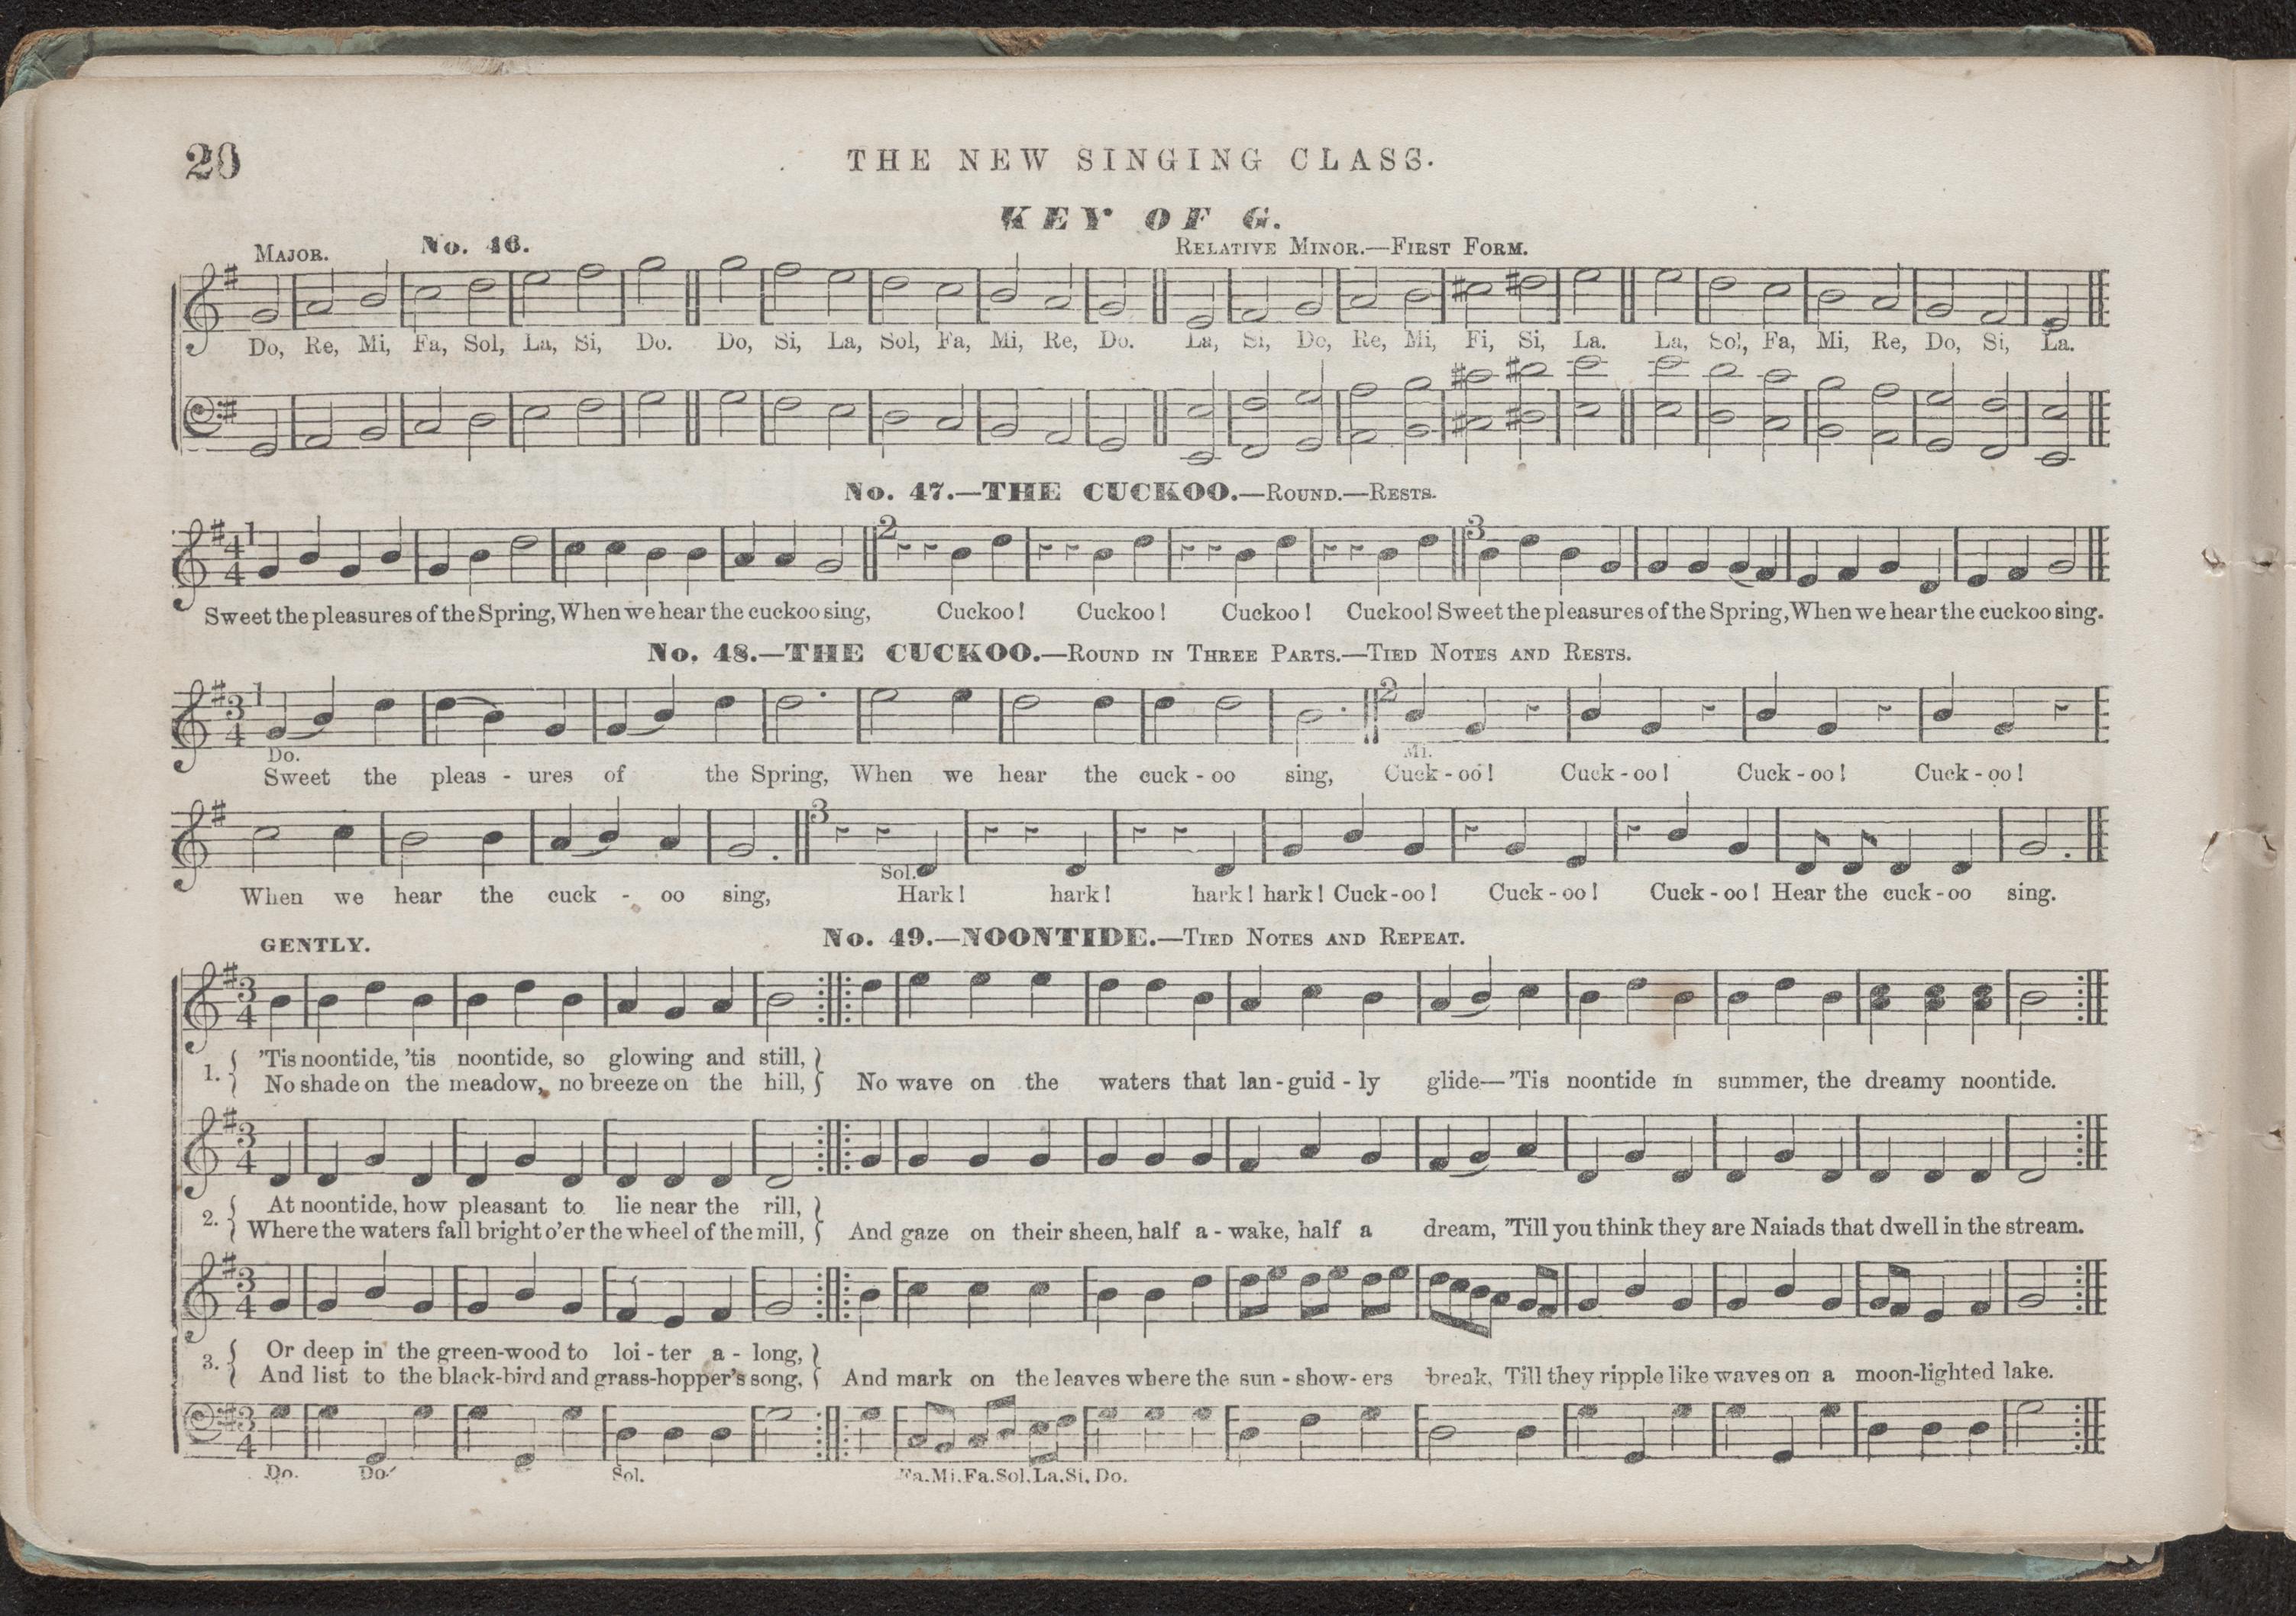 20
THE NEW SINGING CLASS.
KEY OF G.
MAJOR. No. 46. RELATIVE MINOR.—FIRST FORM.
Do, Re, Mi, Fa, Sol, La, Si, Do. Do, Si, La, Sol, Fa, Mi, Re, Do. La, Si, Do, Re, Mi, Fi, Si, La. La, Sol, Fa, Mi, Re, Do, Si, La.
No. 47.—THE CUCKOO.—ROUND.—RESTS.
1 2 3
4 4
Sweet the pleasures of the Spring, When we hear the cuckoo sing, Cuckoo! Cuckoo! Cuckoo! Cuckoo! Sweet the pleasures of the Spring, When we hear the cuckoo sing.
No. 48.—THE CUCKOO.—ROUND IN THREE PARTS.—TIED NOTES AND RESTS.
1 2
3 4
Do. Mi.
Sweet the pleas - ures of the Spring, When we hear the cuck - oo sing, Cuck - oo! Cuck - oo! Cuck - oo! Cuck - oo!
3
Sol.
When we hear the cuck - oo sing, Hark! hark! hark! hark! Cuck - oo! Cuck - oo! Cuck - oo! Hear the cuck - oo sing.
GENTLY. No. 49.—NOONTIDE.—TIED NOTES AND REPEAT.
3 4
1. { 'Tis noontide, 'tis noontide, so glowing and still, }
No shade on the meadow, no breeze on the hill, } No wave on the waters that lan - guid - ly glide—'Tis noontide in summer, the dreamy noontide.
3 4
2. { At noontide, how pleasant to lie near the rill, }
Where the waters fall bright o'er the wheel of the mill, } And gaze on their sheen, half a - wake, half a dream, 'Till you think they are Naiads that dwell in the stream.
3 4
3. { Or deep in the green-wood to loi - ter a - long, }
And list to the black-bird and grass-hopper's song, } And mark on the leaves where the sun - show - ers break, Till they ripple like waves on a moon-lighted lake.
3 4
Do. Do. Sol. Fa. Mi. Fa. Sol. La. Si. Do.